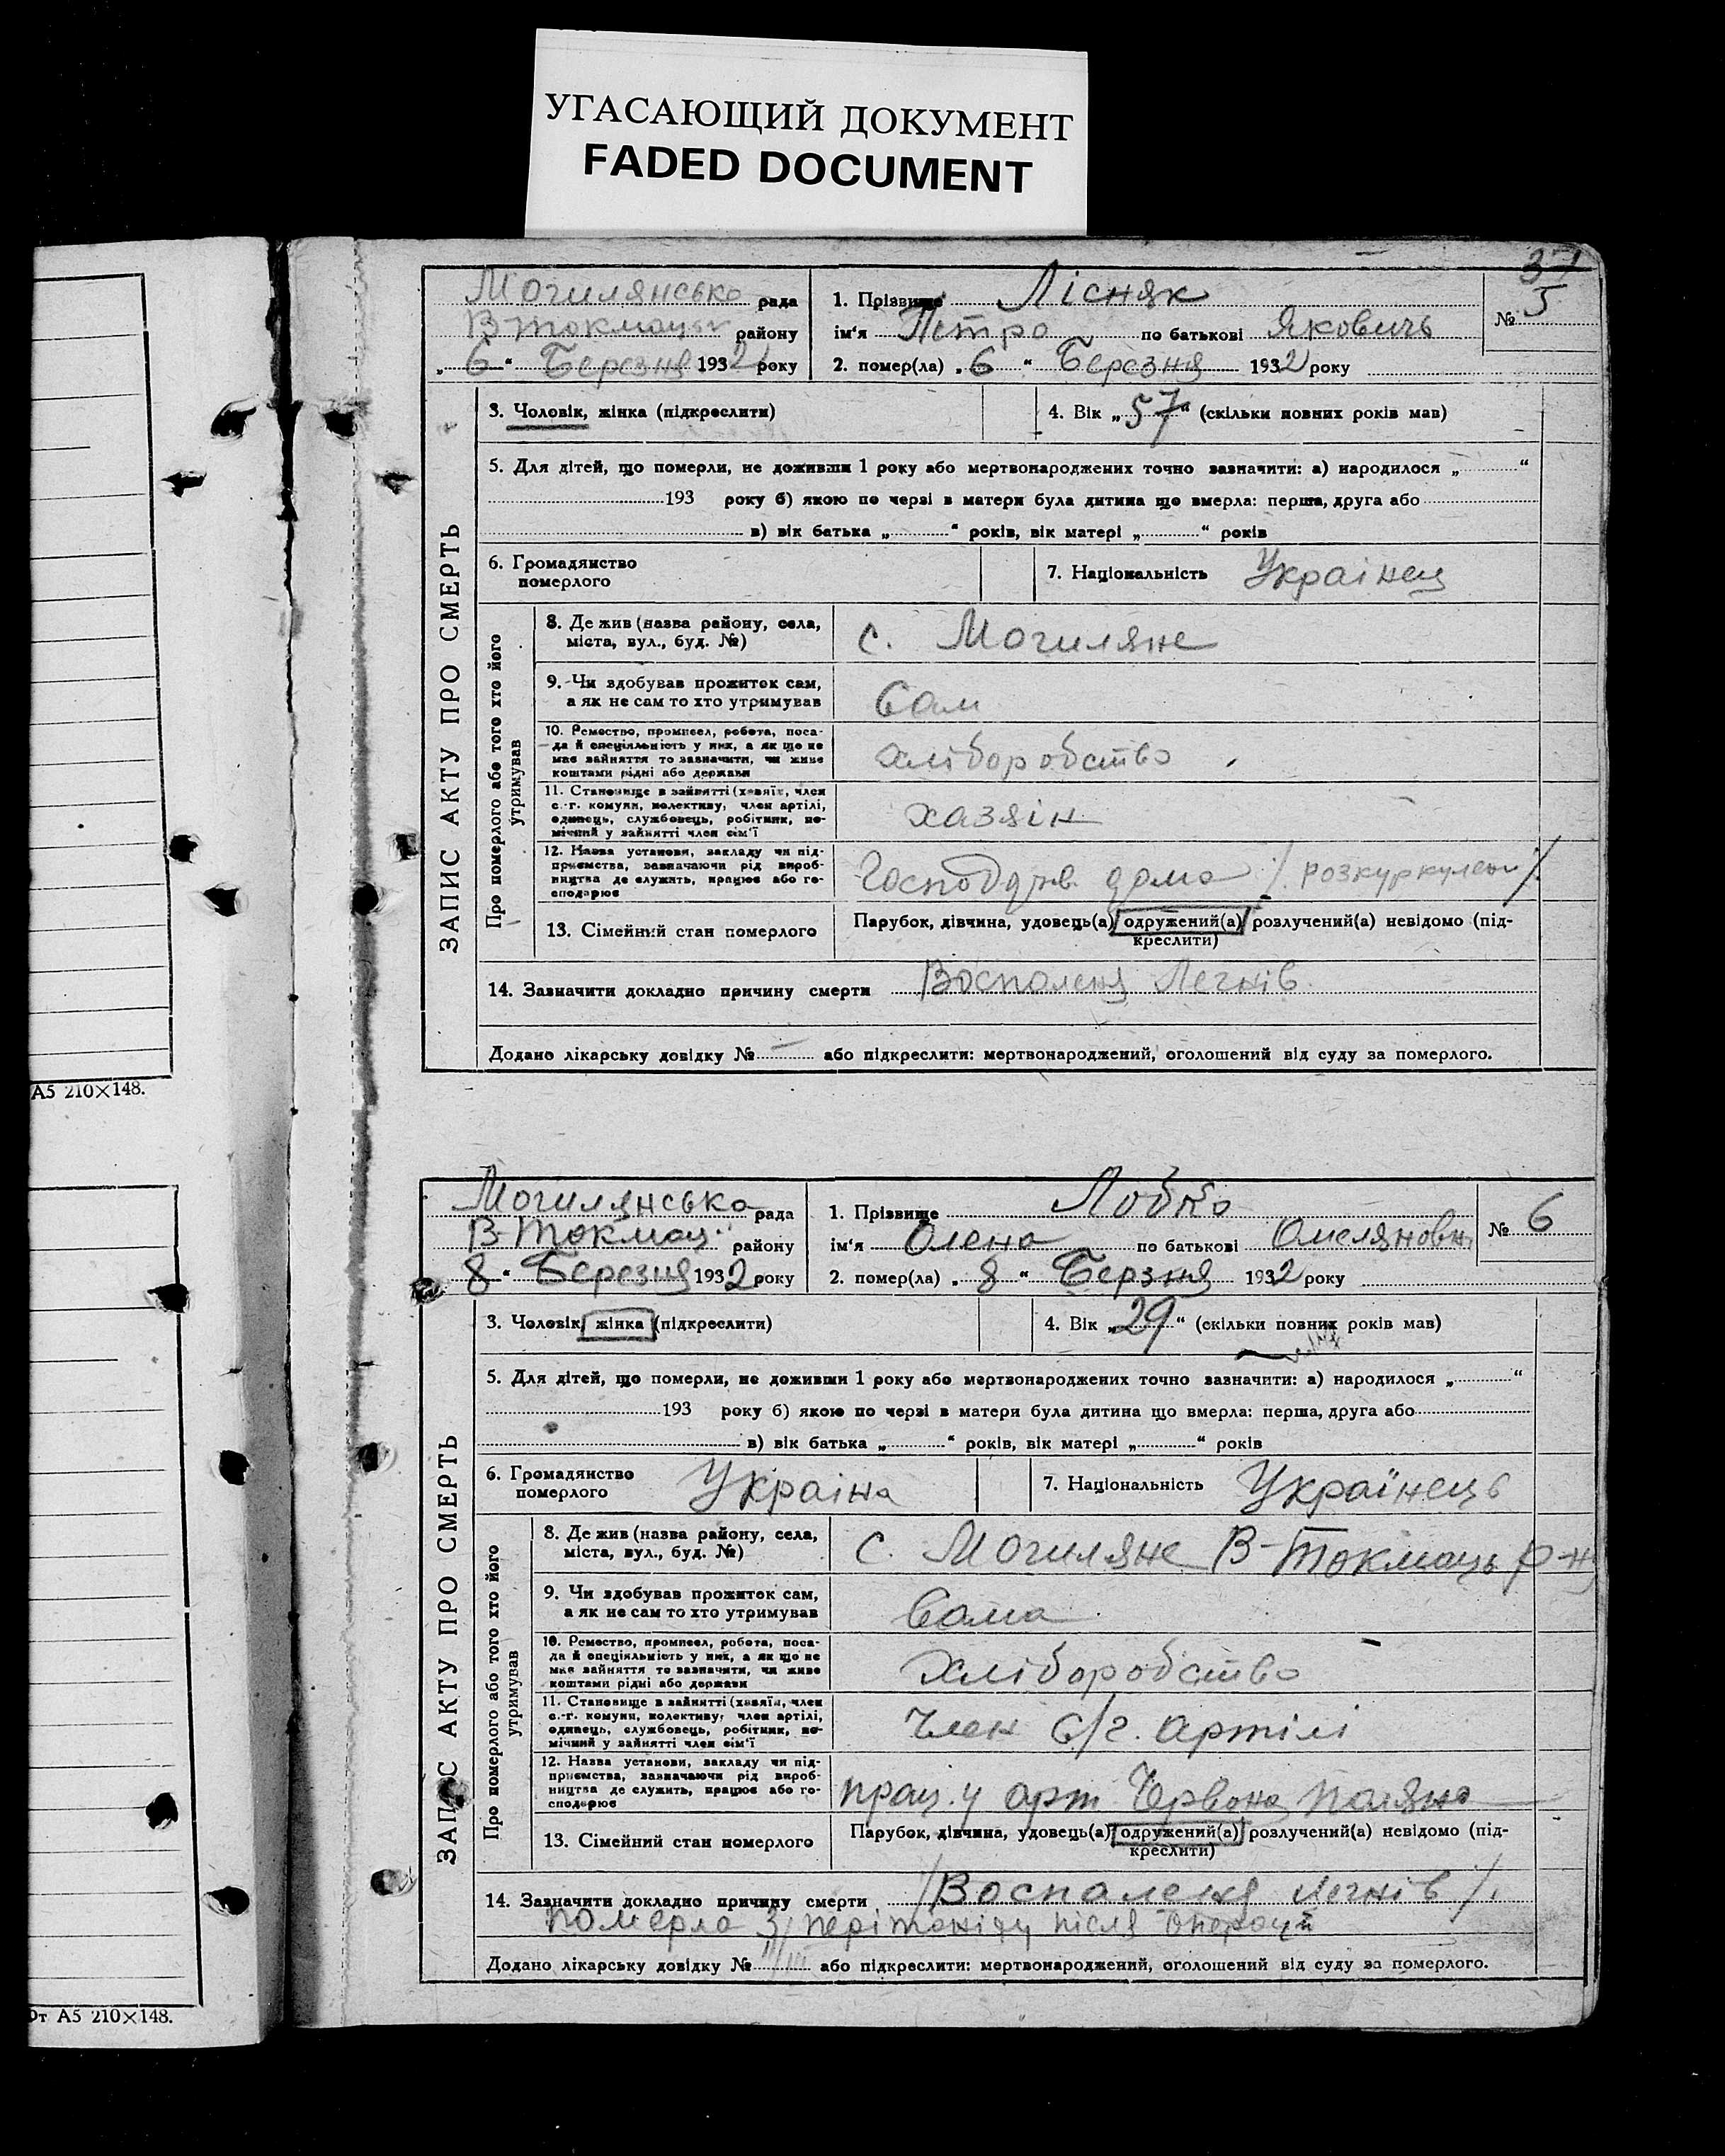 УГАСАЮЩИЙ ДОКУМЕНТ
FADED DOCUMENT
37
Могилянська рада
В-Токмацьк району
„ 6 “ Березня 1932 року
1. Прізвище Лісняк
ім'я Петро по батькові Яковичь
№ 5
2. помер(ла) „ 6 “ Березня 1932 року
ЗАПИС АКТУ ПРО СМЕРТЬ
3. Чоловік, жінка (підкреслити)
4. Вік „ 57 “ (скільки повних років мав)
5. Для дітей, що померли, не доживши 1 року або мертвонароджених точно зазначити: а) народилося „ “
193 року б) якою по черзі в матери була дитина що вмерла: перша, друга або
в) вік батька „ “ років, вік матері „ “ років
6. Громадянство
померлого
7. Національність Украінец
Про померлого або того хто його
утримував
8. Де жив (назва району, села,
міста, вул., буд. №)
с. Могиляне
9. Чи здобував прожиток сам,
а як не сам то хто утримував
Сам
10. Ремество, промисел, робота, поса-
да й спеціяльність у них, а як що не
має зайняття то зазначити, чи живе
коштами рідні або держави
хліборобство
11. Становище в зайнятті (хазяїн, член
с.-г. комуни, колективу, член артілі,
одинець, службовець, робітник, по-
мічний у зайнятті член сім'ї
хазяін
12. Назва установи, закладу чи під-
приємства, зазначаючи рід вироб-
ництва де служить, працює або го-
сподарює
дома
13. Сімейний стан померлого
Парубок, дівчина, удовець(а) одружений(а) розлучений(а) невідомо (під-
креслити)
14. Зазначити докладно причину смерти Восполеня Легнів
Додано лікарську довідку № — або підкреслити: мертвонароджений, оголошений від суду за померлого.
А5 210×148.
Могилянська рада
В-Токмац. району
8 “ Березня 1932 року
1. Прізвище Лобко
ім'я Олена по батькові Омеляновн
№ 6
2. помер(ла) „ 8 “ Берзня 1932 року
ЗАПИС АКТУ ПРО СМЕРТЬ
3. Чоловік жінка (підкреслити)
4. Вік „ 29 “ (скільки повних років мав)
5. Для дітей, що померли, не доживши 1 року або мертвонароджених точно зазначити: а) народилося „ “
193 року б) якою по черзі в матери була дитина що вмерла: перша, друга або
в) вік батька „ “ років, вік матері „ “ років
6. Громадянство
померлого
Украіна
7. Національність Українець
Про померлого або того хто його
утримував
8. Де жив (назва району, села,
міста, вул., буд. №)
с. Могиляне В-Токмаць р-н
9. Чи здобував прожиток сам,
а як не сам то хто утримував
Сама
10. Ремество, промисел, робота, поса-
да й спеціяльність у них, а як що не
має зайняття то зазначити, чи живе
коштами рідні або держави
Хліборобство
11. Становище в зайнятті (хазяїн, член
с.-г. комуни, колективу, член артілі,
одинець, службовець, робітник, по-
мічний у зайнятті член сім'ї
Член С/г. артілі
12. Назва установи, закладу чи під-
приємства, зазначаючи рід вироб-
ництва де служить, працює або го-
сподарює
прац. у арт Червона Поляна
13. Сімейний стан померлого
Парубок, дівчина, удовець(а) одружений(а) розлучений(а) невідомо (під-
креслити)
14. Зазначити докладно причину смерти /Восполеня легнів/.
померла з перітоніту після операції
Додано лікарську довідку № або підкреслити: мертвонароджений, оголошений від суду за померлого.
От А5 210×148.